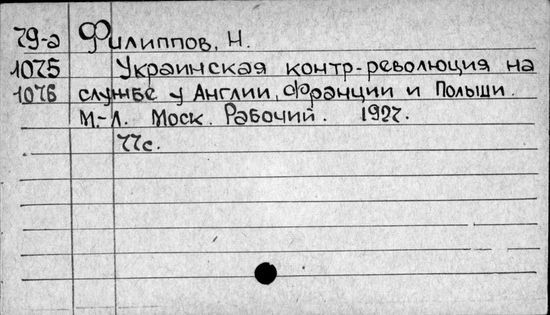 79-а Филиппов, Н.
1075 Украинская контр-революция на
1076 службе у Англии, Франции и Польши.
М.-Л. Моск. Рабочий. 1927.
77с.